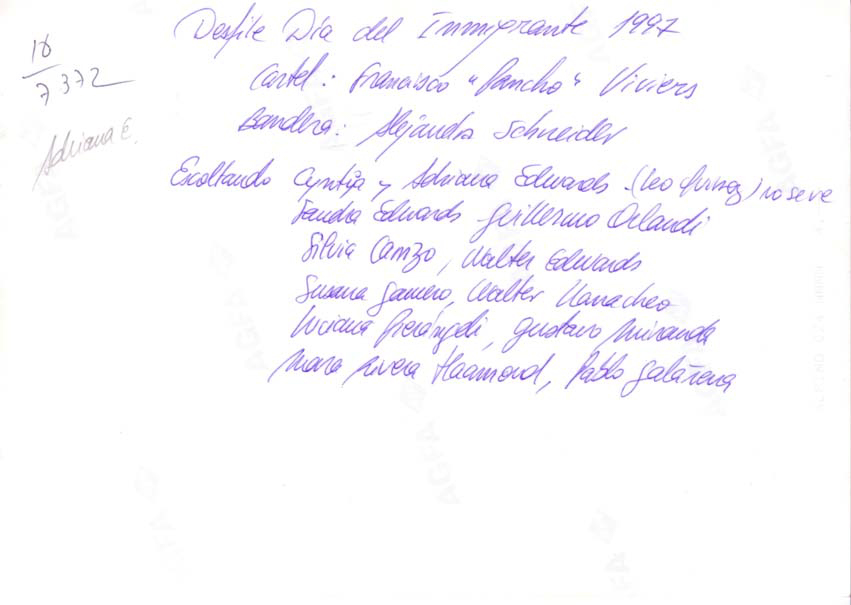 Desfile Día del Inmigrante 1997
18
7372
Cartel: Francisco "Pancho" Viviers
Adriana E.
Bandera: Alejandra Schneider
Escoltando Cyntia y Adriana Edwards (Leo) no se ve
Sandra Edwards Guillermo Orlandi
Silvia Canzo, Walter Edwards
Susana Gamero, Walter
Luciana Pierángeli, Gustavo Miranda
Mara Rivera Haamond, Pablo Galarena
AGFA